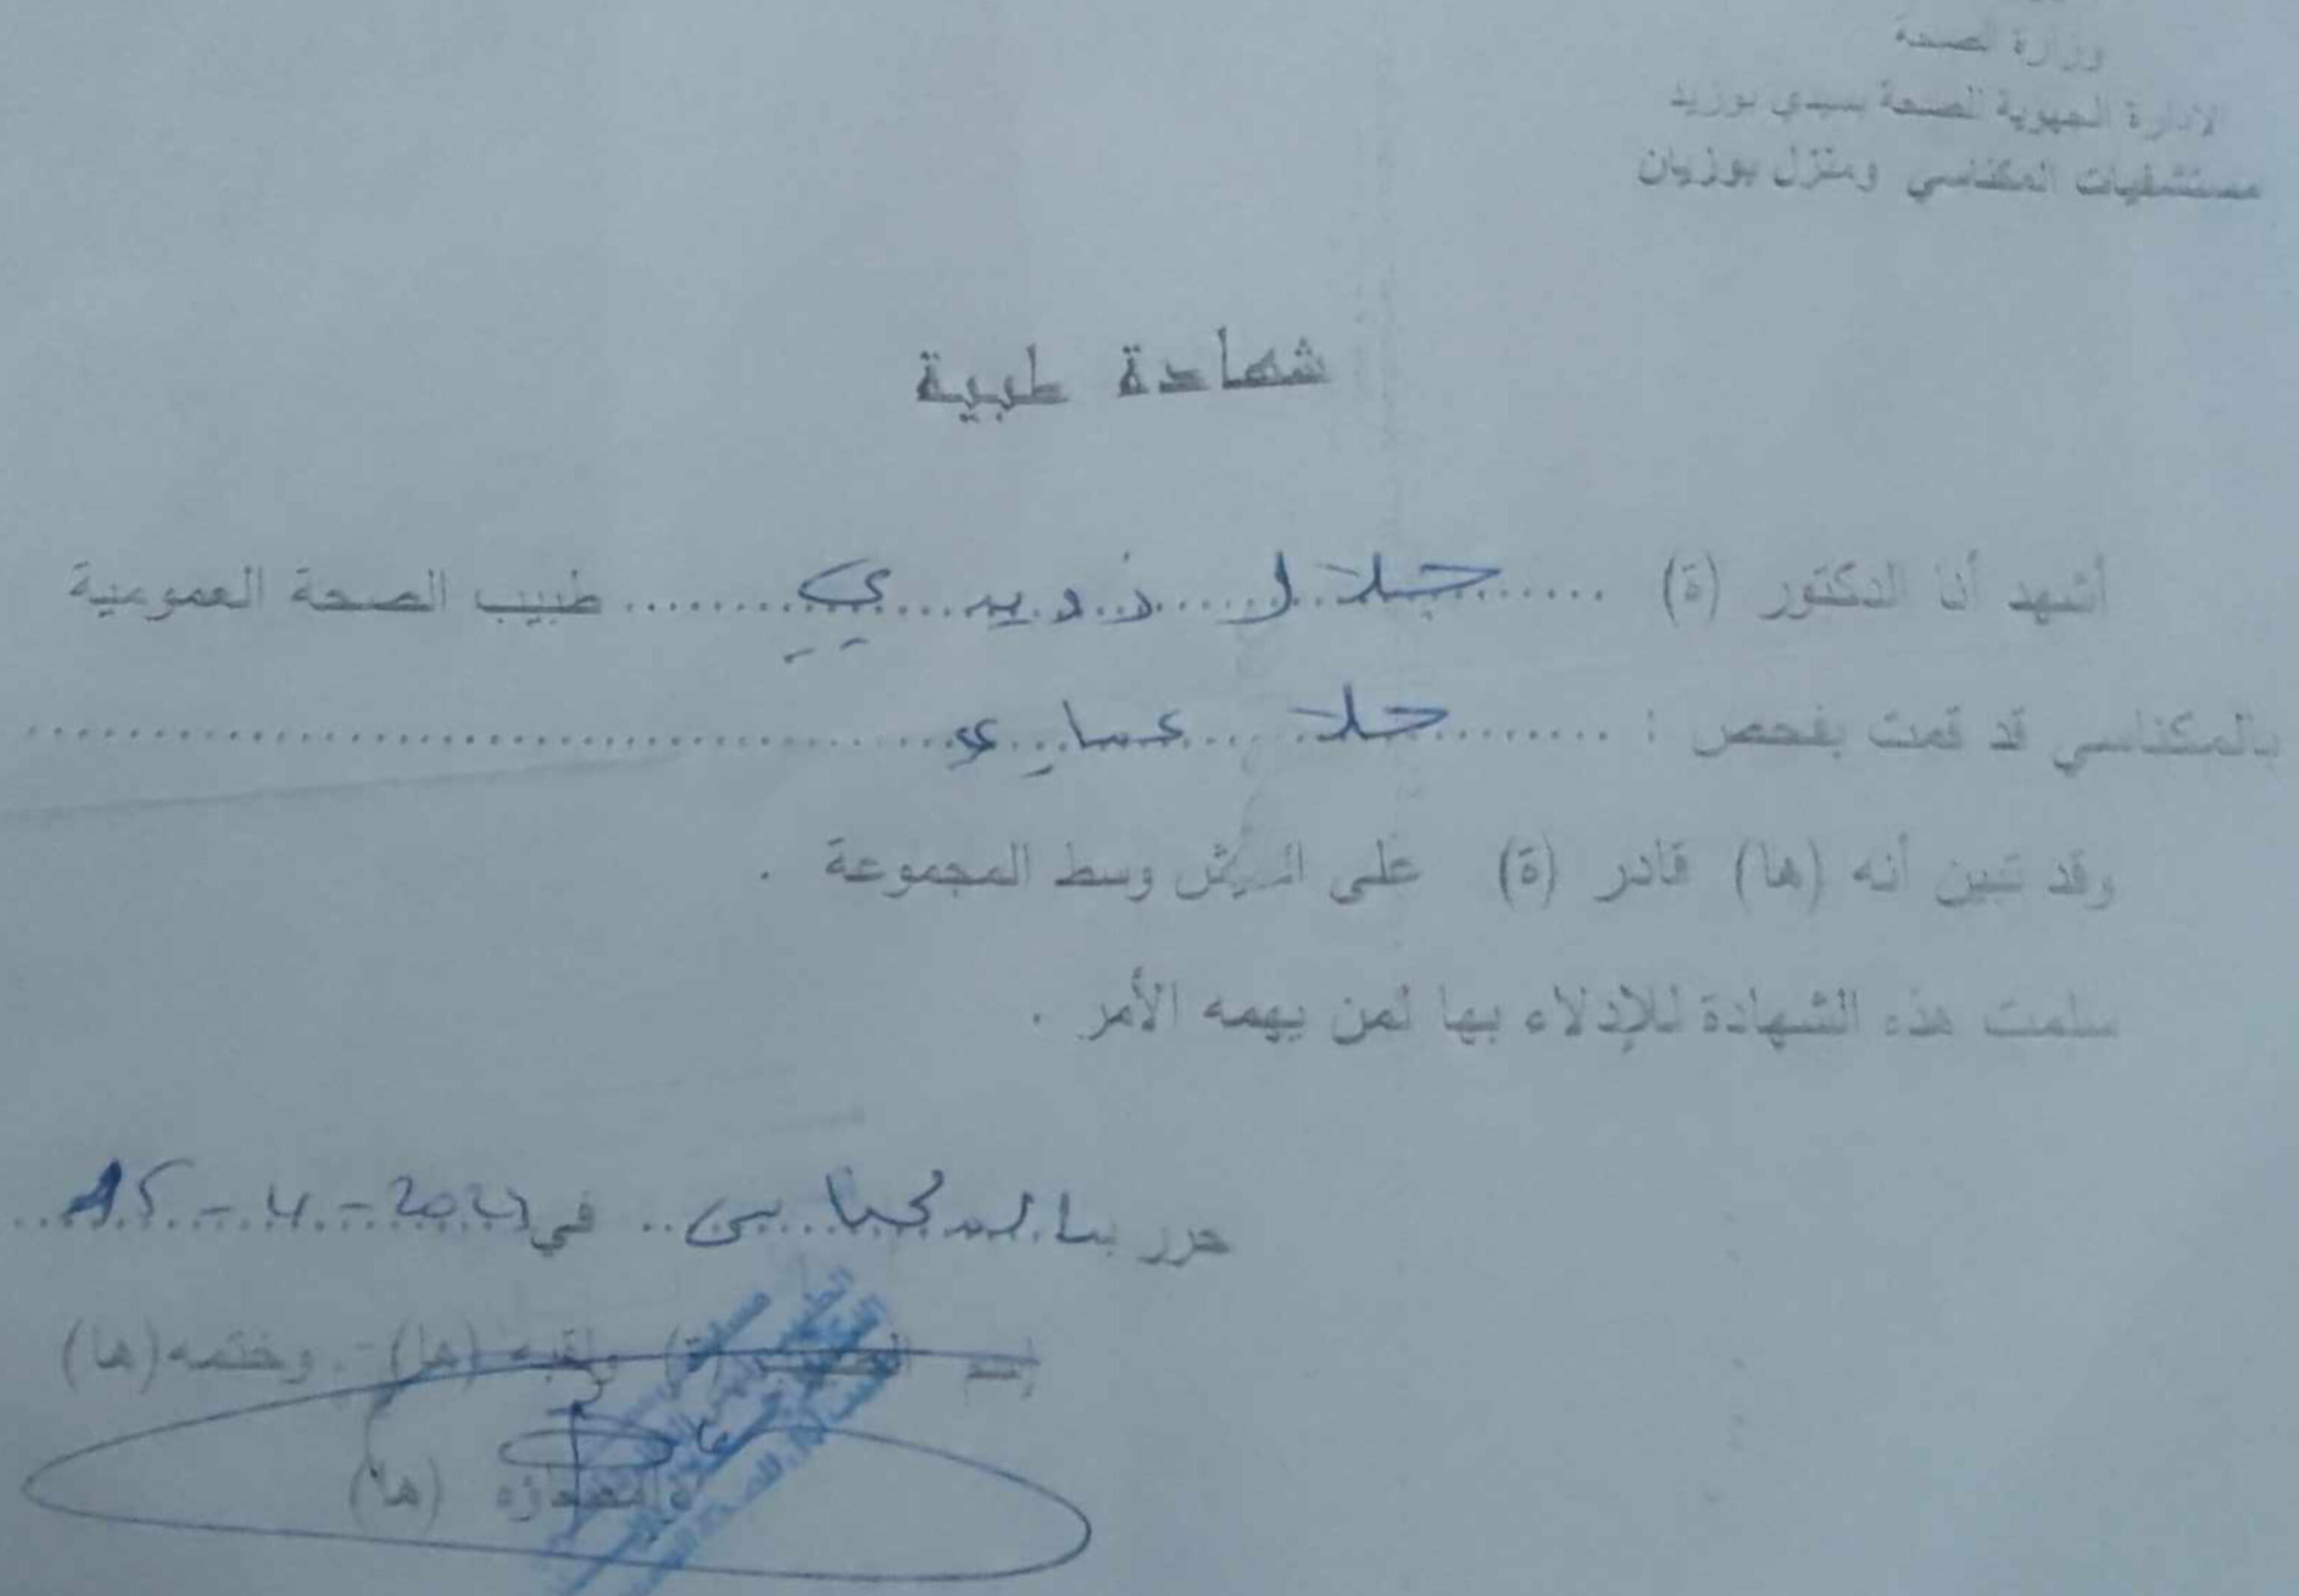 وزارة الصحة
الادارة الجهوية للصحة بسيدي بوزيد
مستشفيات المكناسي ومنزل بوزيان
شهادة طبية
أشهد أنا الدكتور (ة) .......... جلال ذويبي .......... طبيب الصحة العمومية
بالمكناسي قد قمت بفحص : .......... حلا عماري ..........
وقد تبين أنه (ها) قادر (ة) على العيش وسط المجموعة .
سلمت هذه الشهادة للإدلاء بها لمن يهمه الأمر .
حرر بالمكناسي في 15-4-2024
إسم الطبيب (ة) ولقبه (ها) وختمه (ها)
وإمضاؤه (ها)